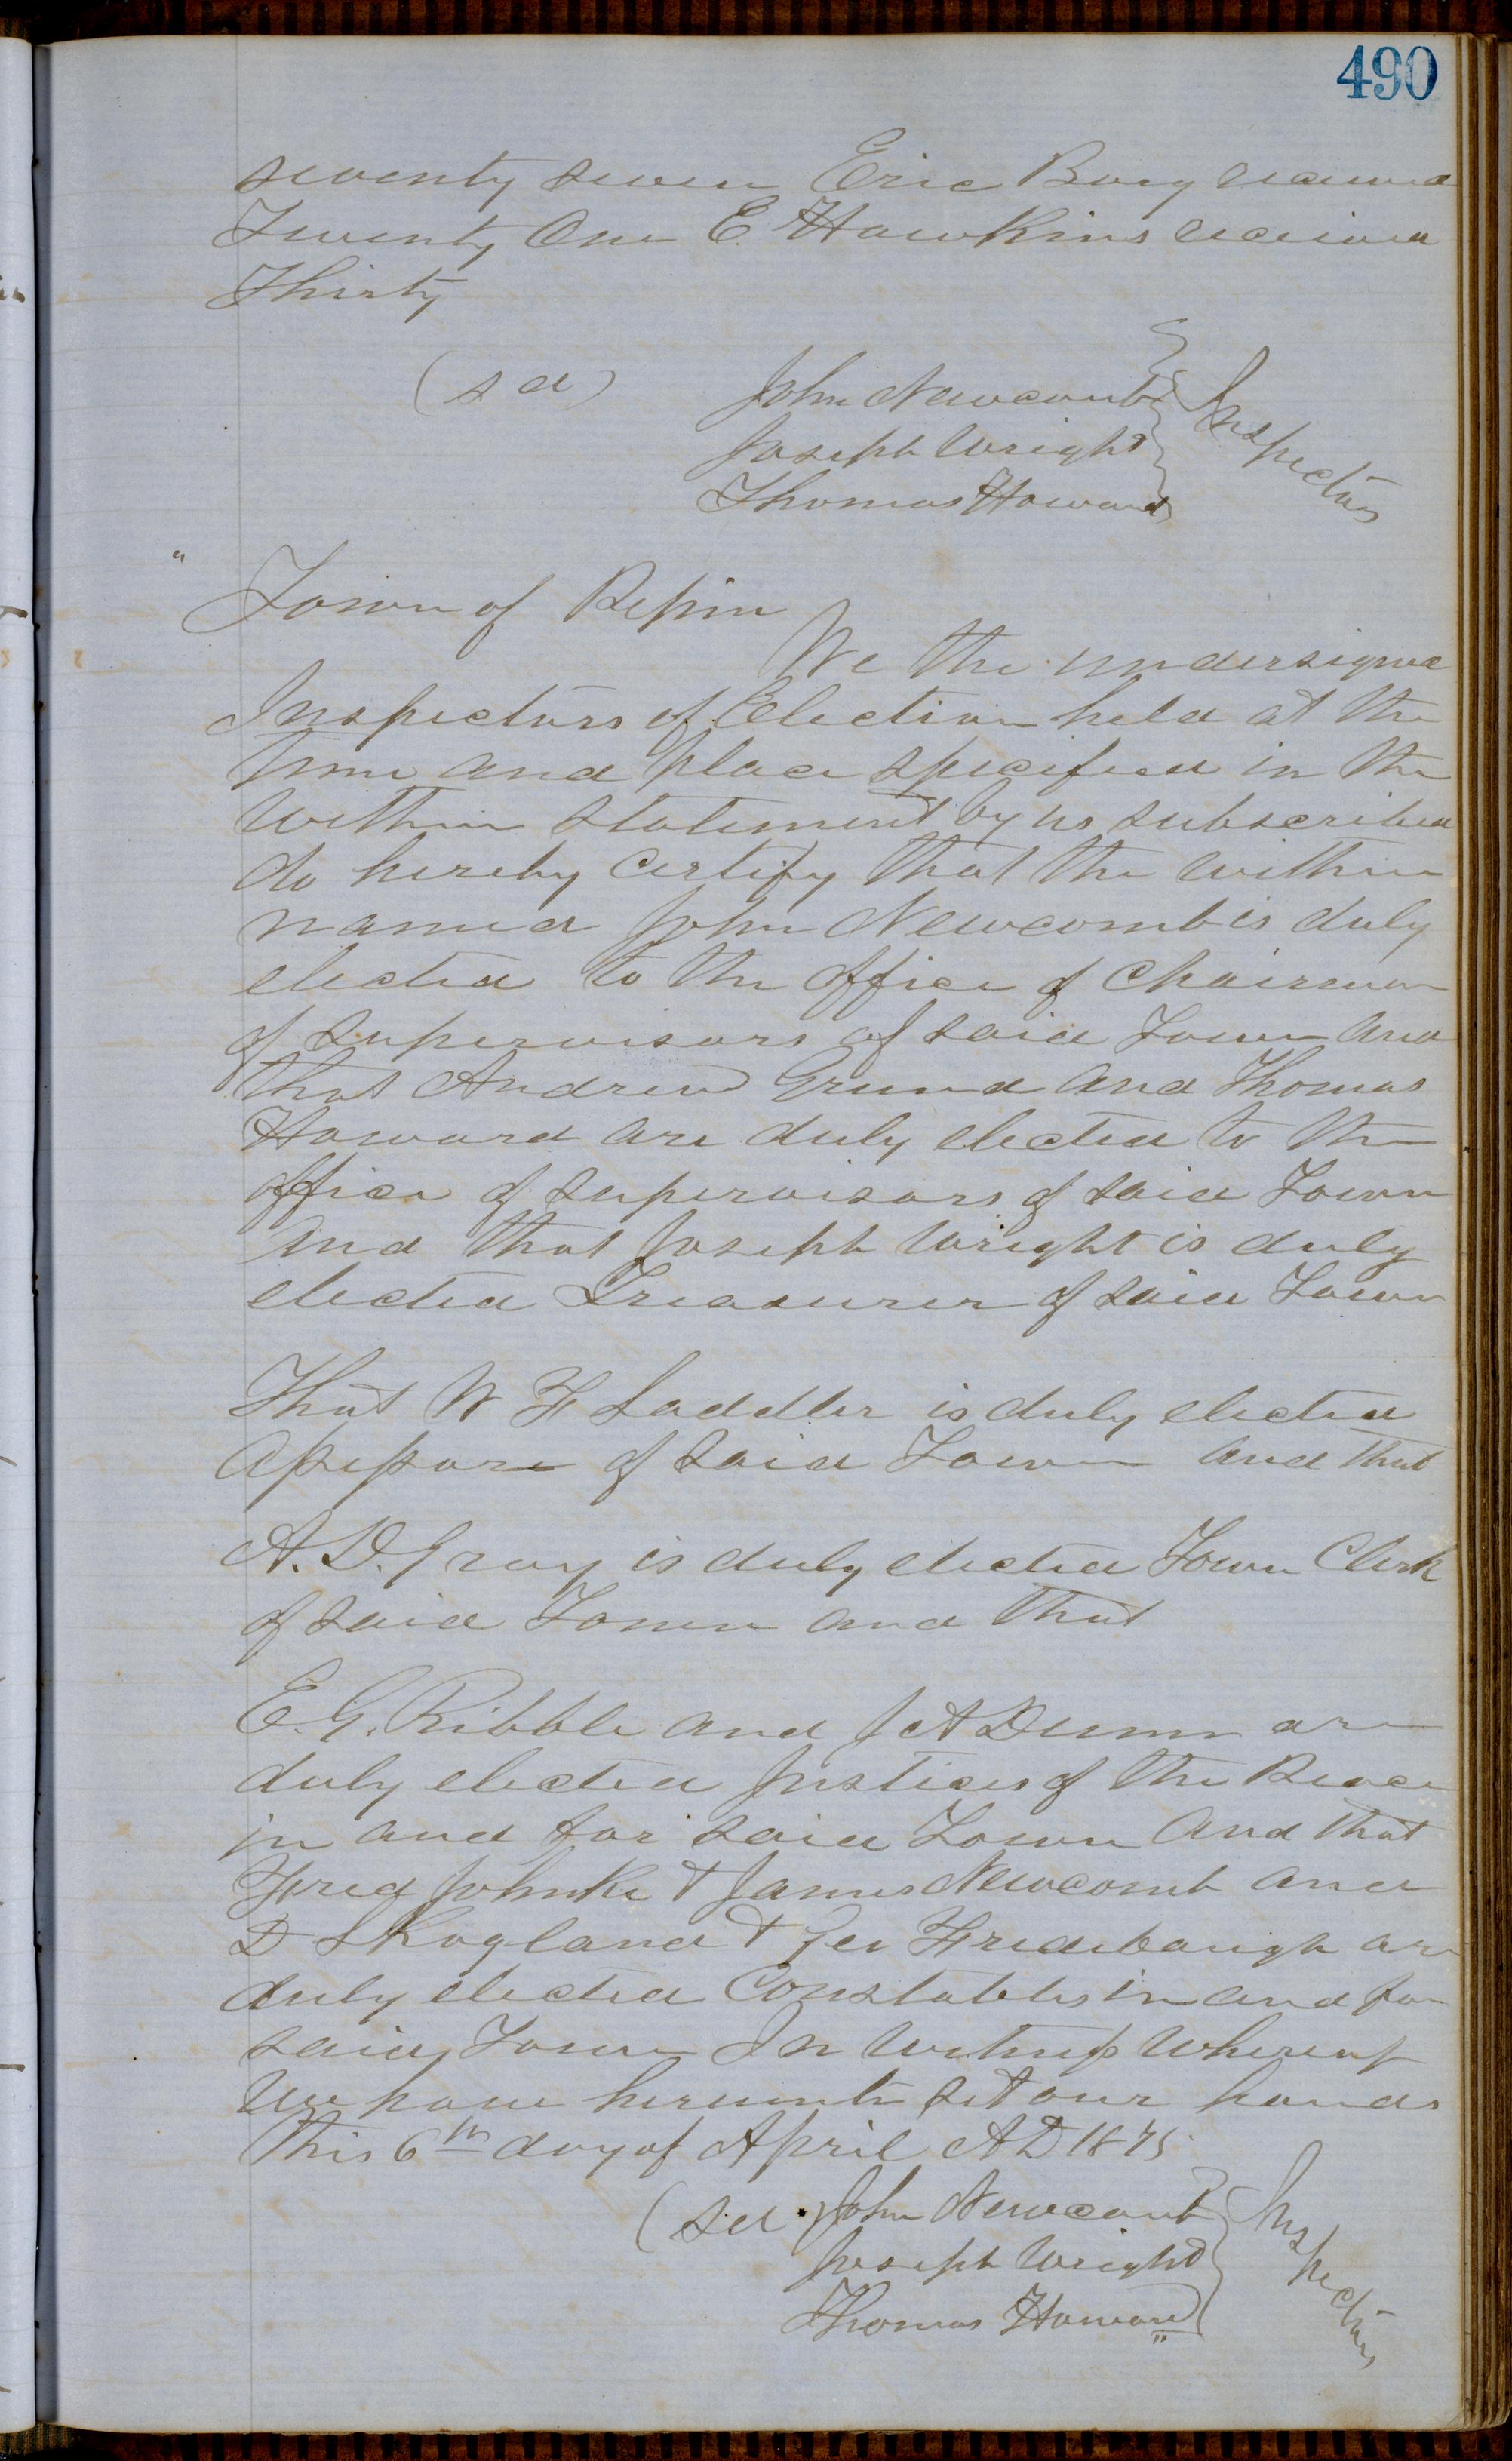 490
seventy seven Eric Borg received
Twenty One E. Hawkins received
Thirty
(sd) John Newcomb
Joseph Wright
Thomas Howard
Inspectors
" Town of Pepin
We the undersigned
Inspectors of Election held at the
time and place specified in the
within statement by us subscribed
do hereby certify that the within
named John Newcomb is duly
elected to the office of Chairman
of Supervisors of said Town and
that Andrew Grund and Thomas
Howard are duly elected to the
office of supervisors of said Town
And that Joseph Wright is duly
elected Treasurer of said Town
That W F Saddler is duly elected
Assessor of said Town and that
A. D. Gray is duly elected Town Clerk
of said Town and that
E. G. Ribble and J A Dunn are
duly elected Justices of the Peace
in and for said Town And that
Fred Johnke & James Newcomb and
D Skogland & Geo Fridebaugh are
duly elected Constables in and for
said Town In Witness Whereof
We have hereunto set our hands
this 6th day of April AD 1875
(sd) John Newcomb
Joseph Wright
Thomas Howard "
Inspectors